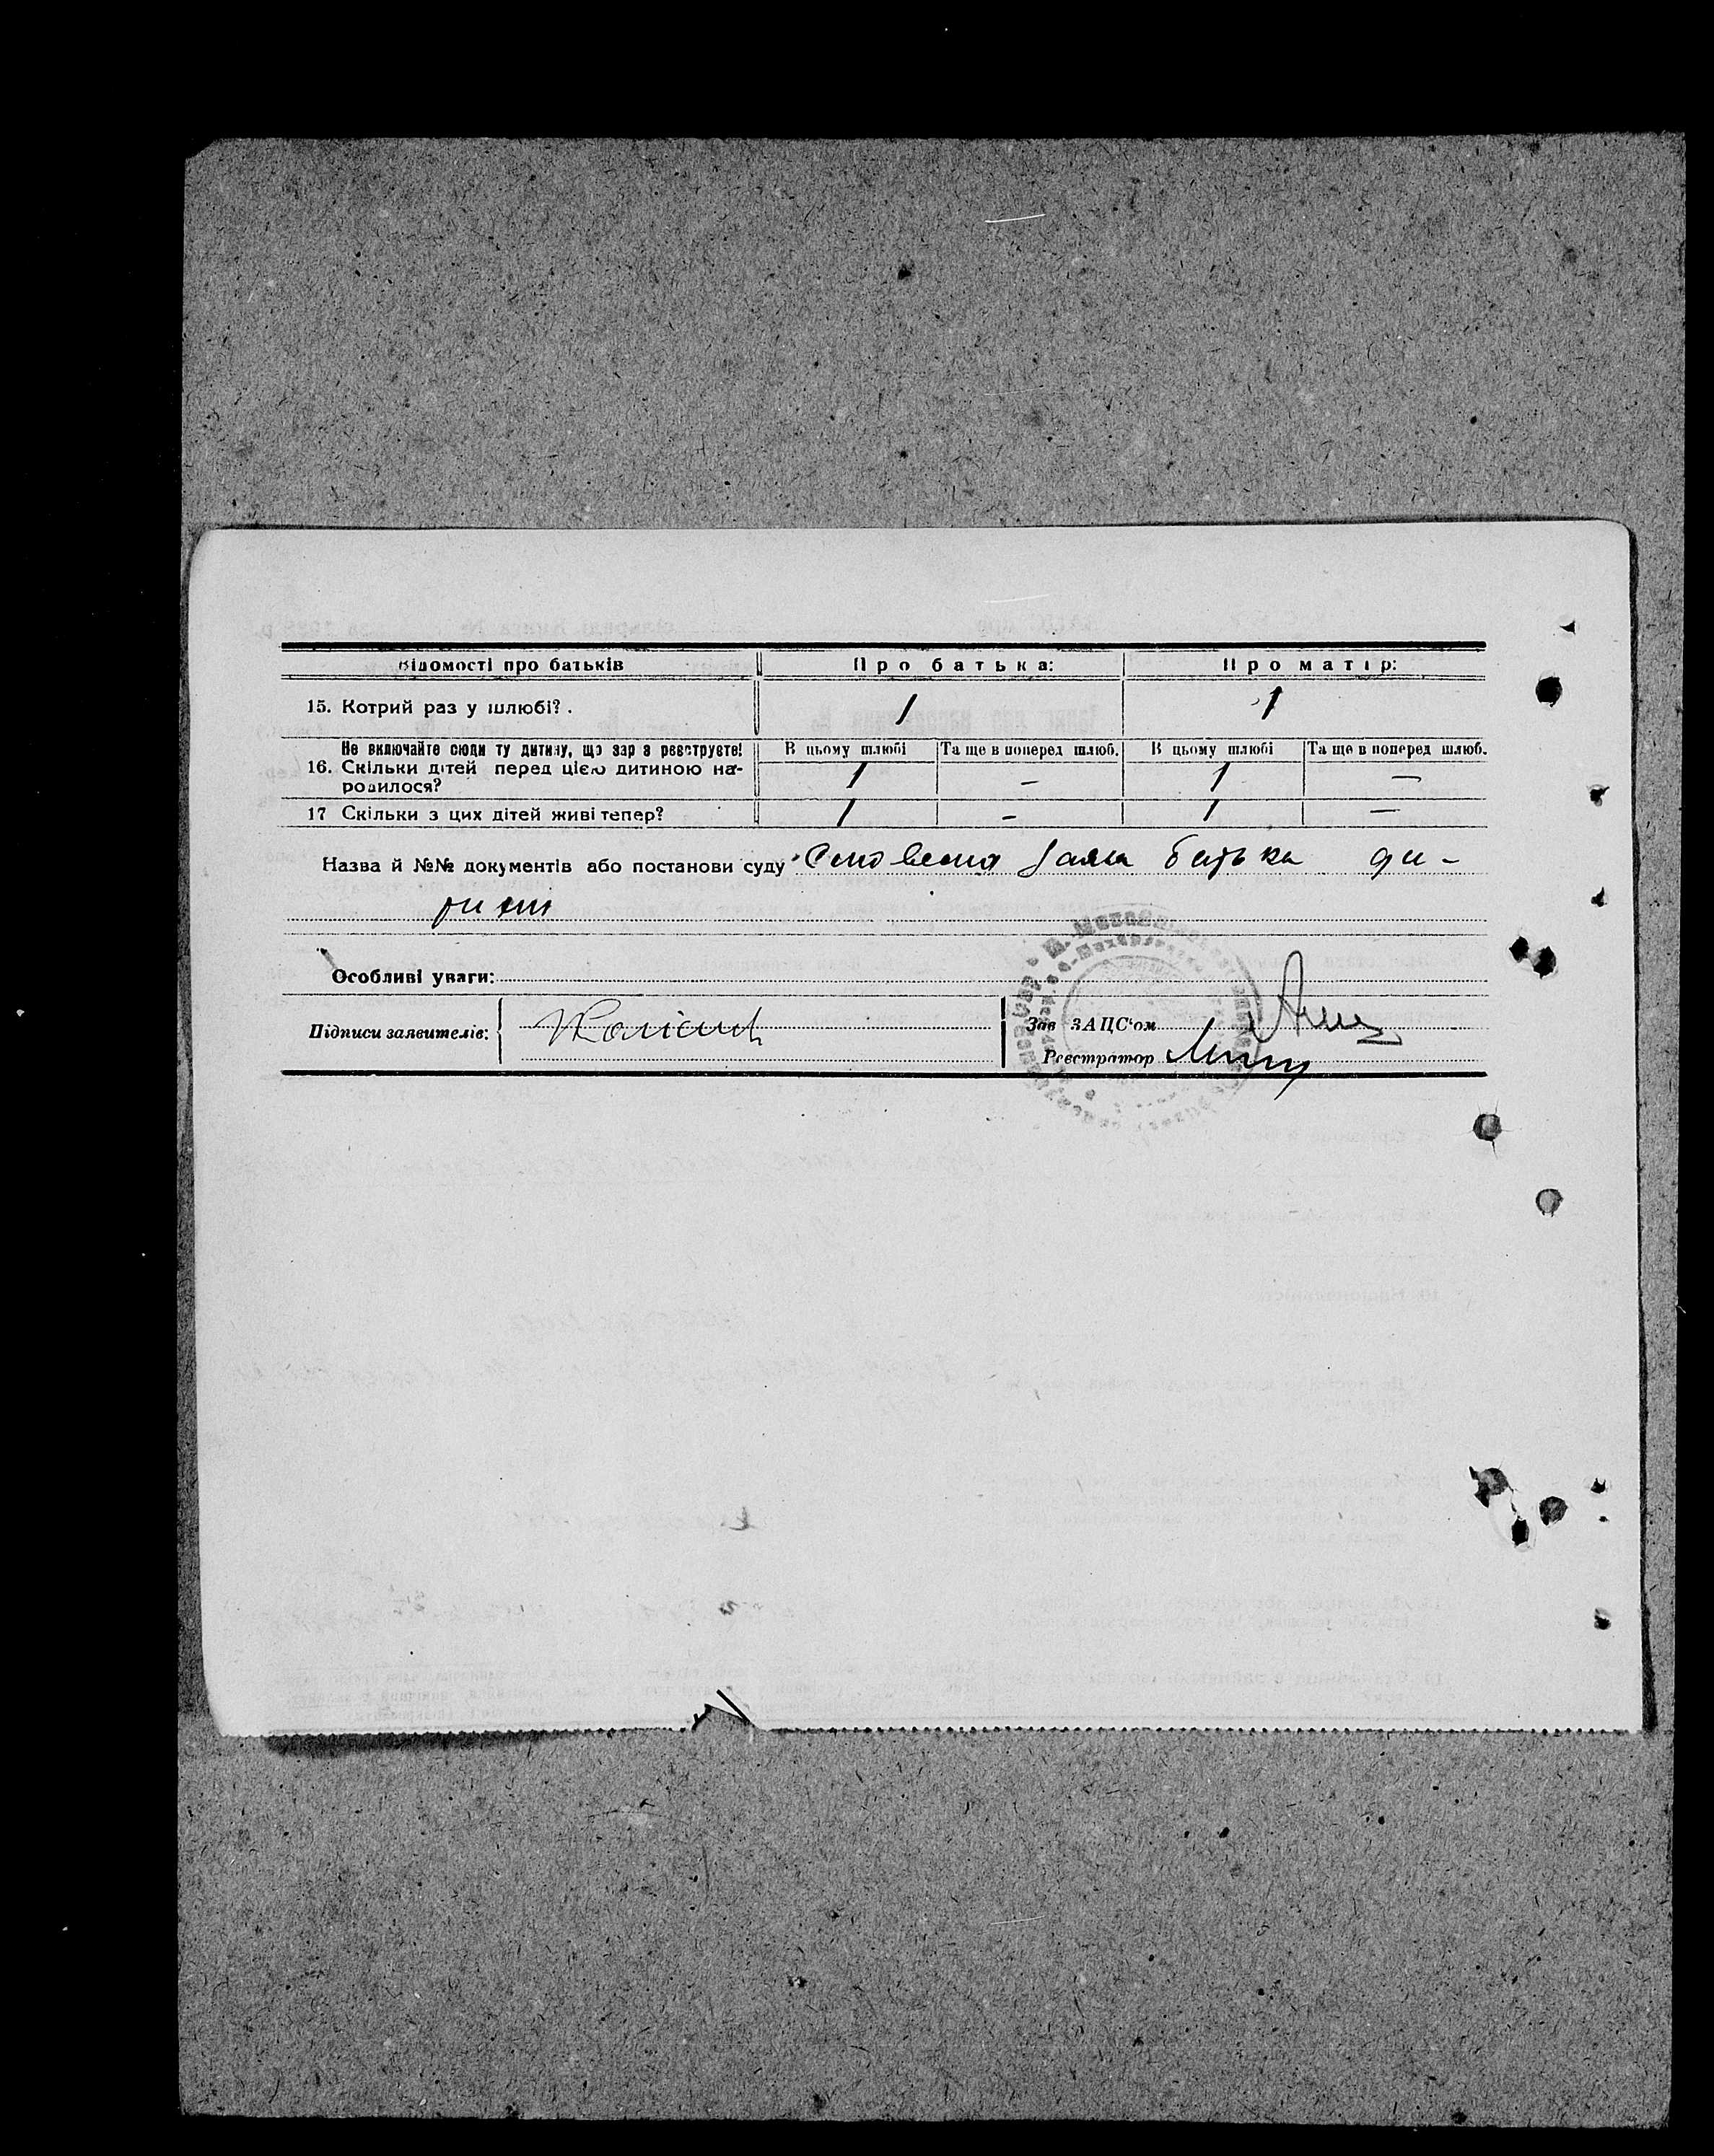 Відомості про батьків Про батька: Про матір:
15. Котрий раз у шлюбі? . 1 1
Не включайте сюди ту дитину, що зараз реєструєте! В цьому шлюбі Та ще в поперед шлюб. В цьому шлюбі Та ще в поперед шлюб.
16. Скільки дітей перед цією дитиною на-
родилося? 1 – 1 –
17 Скільки з цих дітей живі тепер? 1 – 1 –
Назва й №№ документів або постанови суду Словесна заява батька ди-
тини
Особливі уваги:
Підписи заявителів: Зав ЗАЦС'ом
Реєстратор